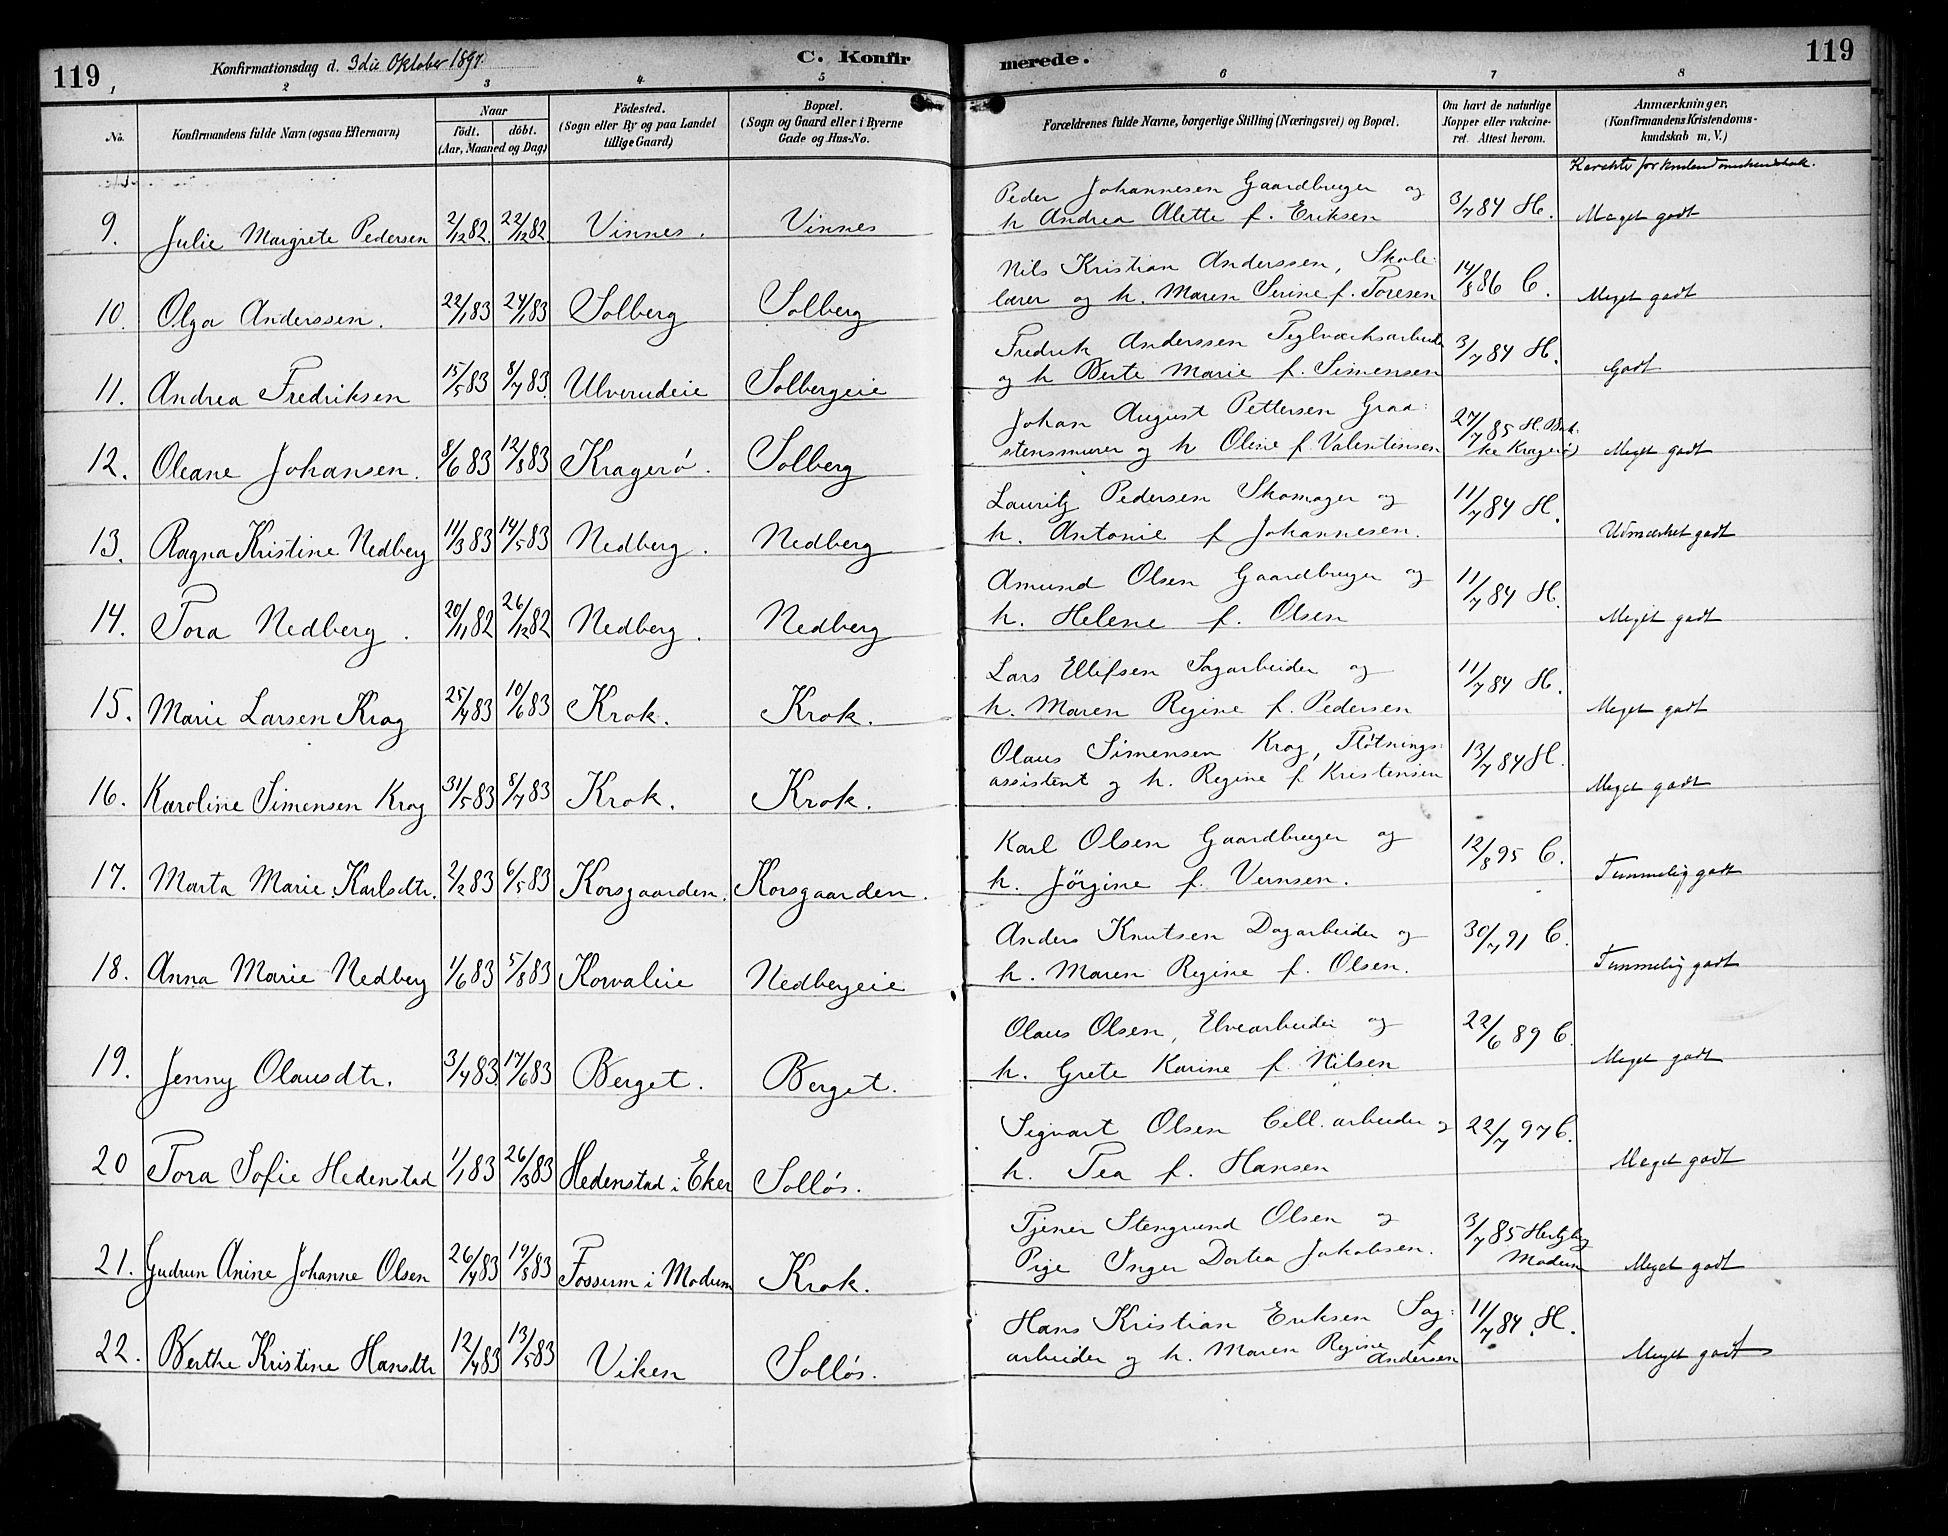 119
Konfirmationsdag d. 3die Oktober 1897.
C. Konfirmerede.
119
1 2 3 4 5 6 7 8
No. Konfirmandens fulde Navn (ogsaa Efternavn) Naar födt. döbt. (Aar, Maaned og Dag) Födested. (Sogn eller By og paa Landet tillige Gaard) Bopæl. (Sogn og Gaard eller i Byerne Gade og Hus-No. Forældrenes fulde Navne, borgerlige Stilling (Næringsvei) og Bopæl. Om havt de naturlige Kopper eller vakcineret. Attest herom. Anmærkninger, (Konfirmandens Kristendomskundskab m. V.)
Karakter for
9. Julie Margrete Pedersen 2/12 82. 22/12 82. Vinnes. Vinnes Peder Johannesen Gaardbruger og
h Andrea Alette f. Eriksen 3/7 84 H. Meget godt
10. Olga Anderssen. 22/1 83 24/1 83 Solberg Solberg Nils Kristian Anderssen, Skole-
lærer og h. Maren Serine f. Toresen 14/8 86 C. Meget godt
11. Andrea Fredriksen 15/5 83 8/7 83 Ulverudeie Solbergeie Fredrik Anderssen Teglværksarbeider
og h Berte Marie f. Simensen 3/7 84 H. Godt
12. Oleane Johansen. 8/6 83 12/8 83 Kragerö. Solberg Johan August Pettersen Graa-
stensmurer og h Oline f. Valentinsen 27/7 85 H. Kragerö Meget godt
13. Ragna Kristine Nedberg 11/3 83 14/5 83 Nedberg. Nedberg Lauritz Pedersen Skomager og
h. Antonie f Johannesen. 11/7 84 H. Udmærket godt
14. Tora Nedberg. 20/11 82 26/12 82 Nedberg. Nedberg Amund Olsen Gaardbruger og
h. Helene f. Olsen 11/7 84 H. Meget godt
15. Marie Larsen Krog 25/4 83 10/6 83 Krok. Krok. Lars Ellefsen Sagarbeider og
h. Maren Regine f. Pedersen 11/7 84 H. Meget godt
16. Karoline Simensen Krog 31/5 83 8/7 83 Krok. Krok. Olaus Simensen Krog, Flötnings-
assistent og h. Regine f Kristensen 13/7 84 H. Meget godt
17. Marta Marie Karlsdtr. 2/2 83 6/5 83 Korsgaarden. Korsgaarden. Karl Olsen Gaardbruger og
h. Jörgine f. Vernsen. 12/8 95 C. Temmelig godt
18. Anna Marie Nedberg 1/6 83 5/8 83 Korvaleie Nedbergeie Anders Knutsen Dagarbeider og
h. Maren Regine f. Olsen. 30/7 91 C. Temmelig godt
19. Jenny Olausdtr. 3/4 83 17/6 83 Berget. Berget. Olaus Olsen, Elvearbeider og
h. Grete Karine f. Nilsen 22/6 89 C. Meget godt
20 Tora Sofie Hedenstad 1/1 83 26/3 83 Hedenstad i Eker Sollös. Sigvart Olsen Cell. arbeider og
h. Tea f. Hansen 22/7 97 C. Meget godt
21. Gudrun Anine Johanne Olsen 26/4 83 19/8 83 Fossum i Modum Krok. Tjener Stengrund Olsen og
Pige Inger Dortea Jakobsen. 3/7 85 Modum Meget godt
22. Berthe Kristine Hansdtr 12/4 83 13/5 83 Viken Sollös. Hans Kristian Eriksen Sag-
arbeider og h. Maren Regine f Andersen 11/7 84. H. Meget godt